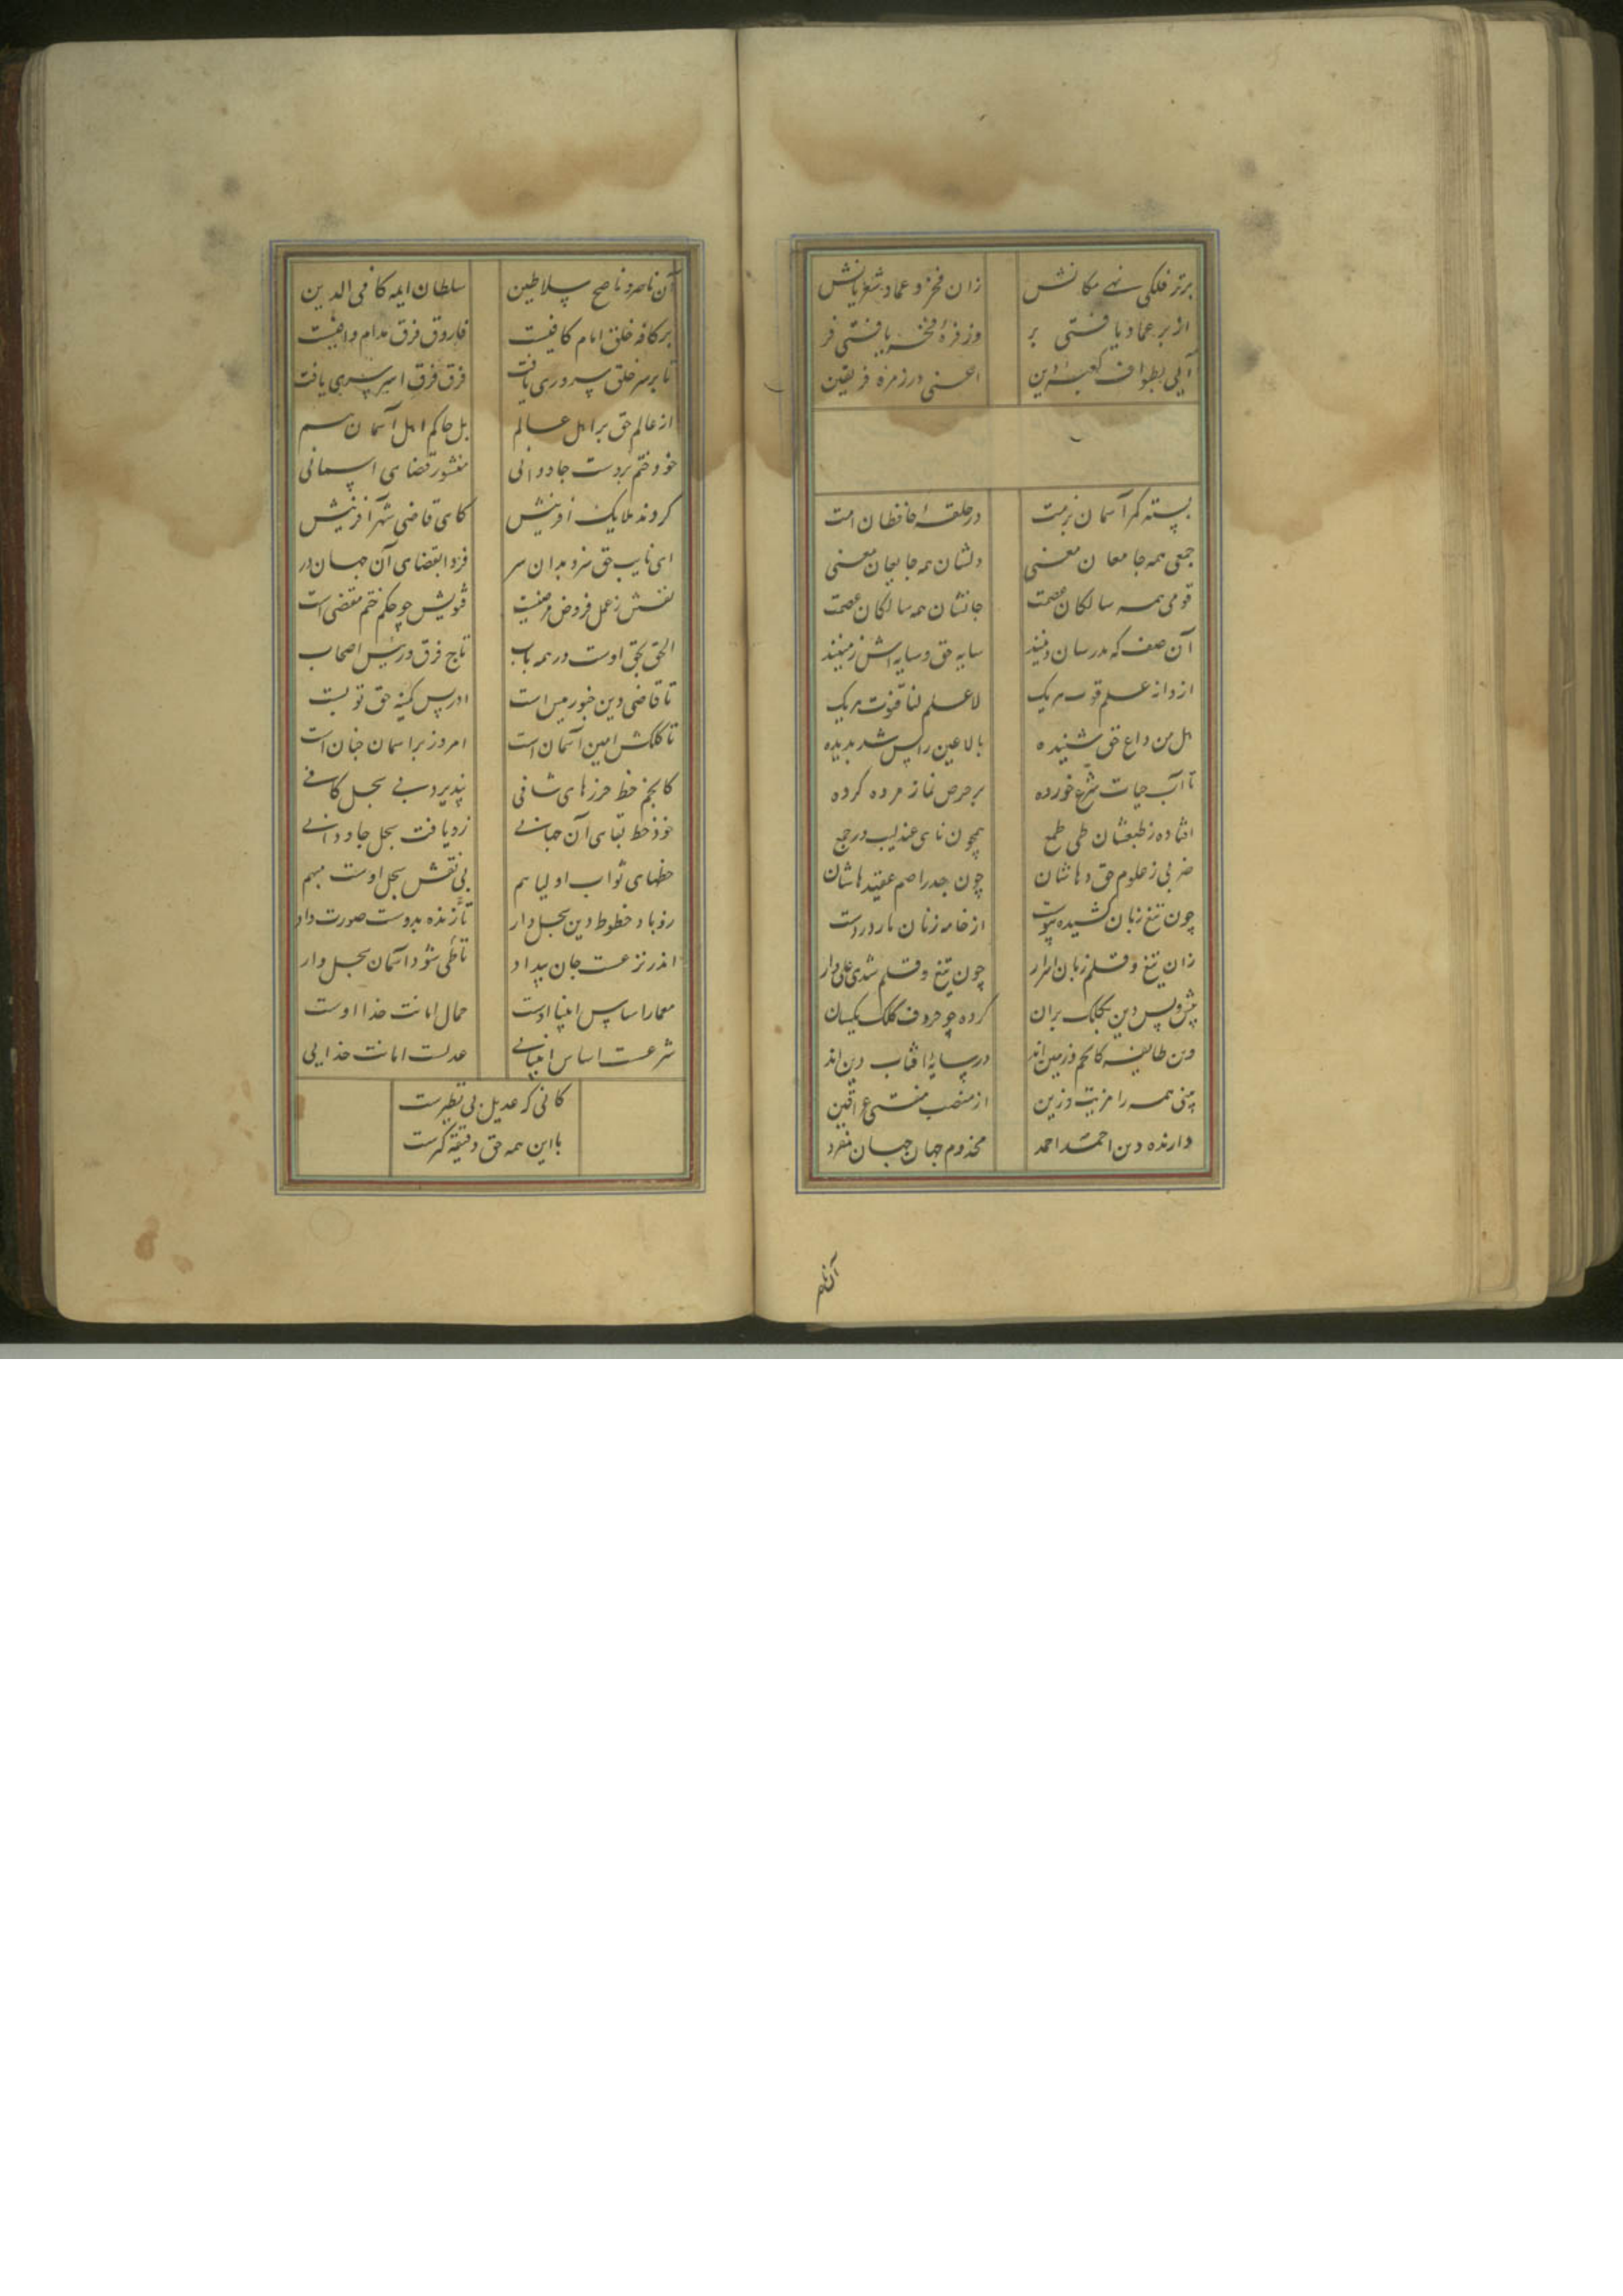 برتر فلکی نهی مکانش زان فخر و عماد شعریانش
از بر عماد یافتی بر وز فره فخر یافتی فر
آیی بطواف کعبه دین اعنی در زمره فریقین
بسته کمر آسمان بزمت در حلقه حافظان امت
جمعی همه جامعان معنی دلشان همه جامعان معنی
قومی همه سالکان عصمت جانشان همه سالکان عصمت
آن صف که مدرسان دینند سایه حق و سایه اش زمینند
از دانه علم قوت هر یک لا علم لنا قنوت هر یک
هل من داع حق شنیده بالا عین راس شد بدیده
تا آب حیات شرع خورده بر حرص نماز مرده کرده
افتاده ز طبعشان طی طمع همچون نای عندلیب در جمع
ضربی ز علوم حق دهاشان چون جدر اصم عقیدهاشان
چون تیغ زبان کشیده پیوست از خامه زنان مار در دست
زان تیغ و قلم زبان اسرار چون تیغ و قلم شدی علی دار
پیش و پس دین بکلک بران کرده چو حروف کلک یکسان
وین طایفه کانجم زمین اند در سایه افتاب دین اند
بینی همه را مزیت و زین از منصب مفتی عراقین
دارنده دین احمد احمد مخدوم جهان جهان منفرد
آن ناصر
آن ناصر و ناصح سلاطین سلطان ایمه کافی الدین
بر کافه خلق امام کافیست فاروق فرق مدام وافیست
تا بر سر خلق سروری یافت فرق فرق اسیر سری یافت
از عالم حق بر اهل عالم بل حاکم اهل آسمان هم
خود ختم بر دست جاودانی منشور قضای اسمانی
کردند ملایک افرینش کای قاضی شهر آفرینش
ای نایب حق نرو بدان سر فردا بقضای آن جهان در
نفسش ز عمل فروض فرضیست فتویش چو حکم ختم مقضی است
الحق بحق اوست در همه باب تاج فرق و رئیس اصحاب
تا قاضی دین خبور میس است ادریس کمینه حق تو بست
تا کلکش امین آسمان است امروز بر اسمان چنان است
کانجم خط حرزهای شافی نپذیرد بی سجل کافی
خود خط بقای آن جهانی زو یافت سجل جاودانی
خطهای ثواب اولیا هم بی نقش سجل اوست مبهم
رو باد خطوط دین سجل وار تا زنده بدوست صورت داد
اندر نزعست جان بیداد تا طی شود اسمان سجل وار
معمار اساس انبیا اوست حمال امانت خدا اوست
شرعست اساس انبیایی عدلست امانت خدایی
کانی که عدیل بی نظیرست
با این همه حق دقیقه گیرست